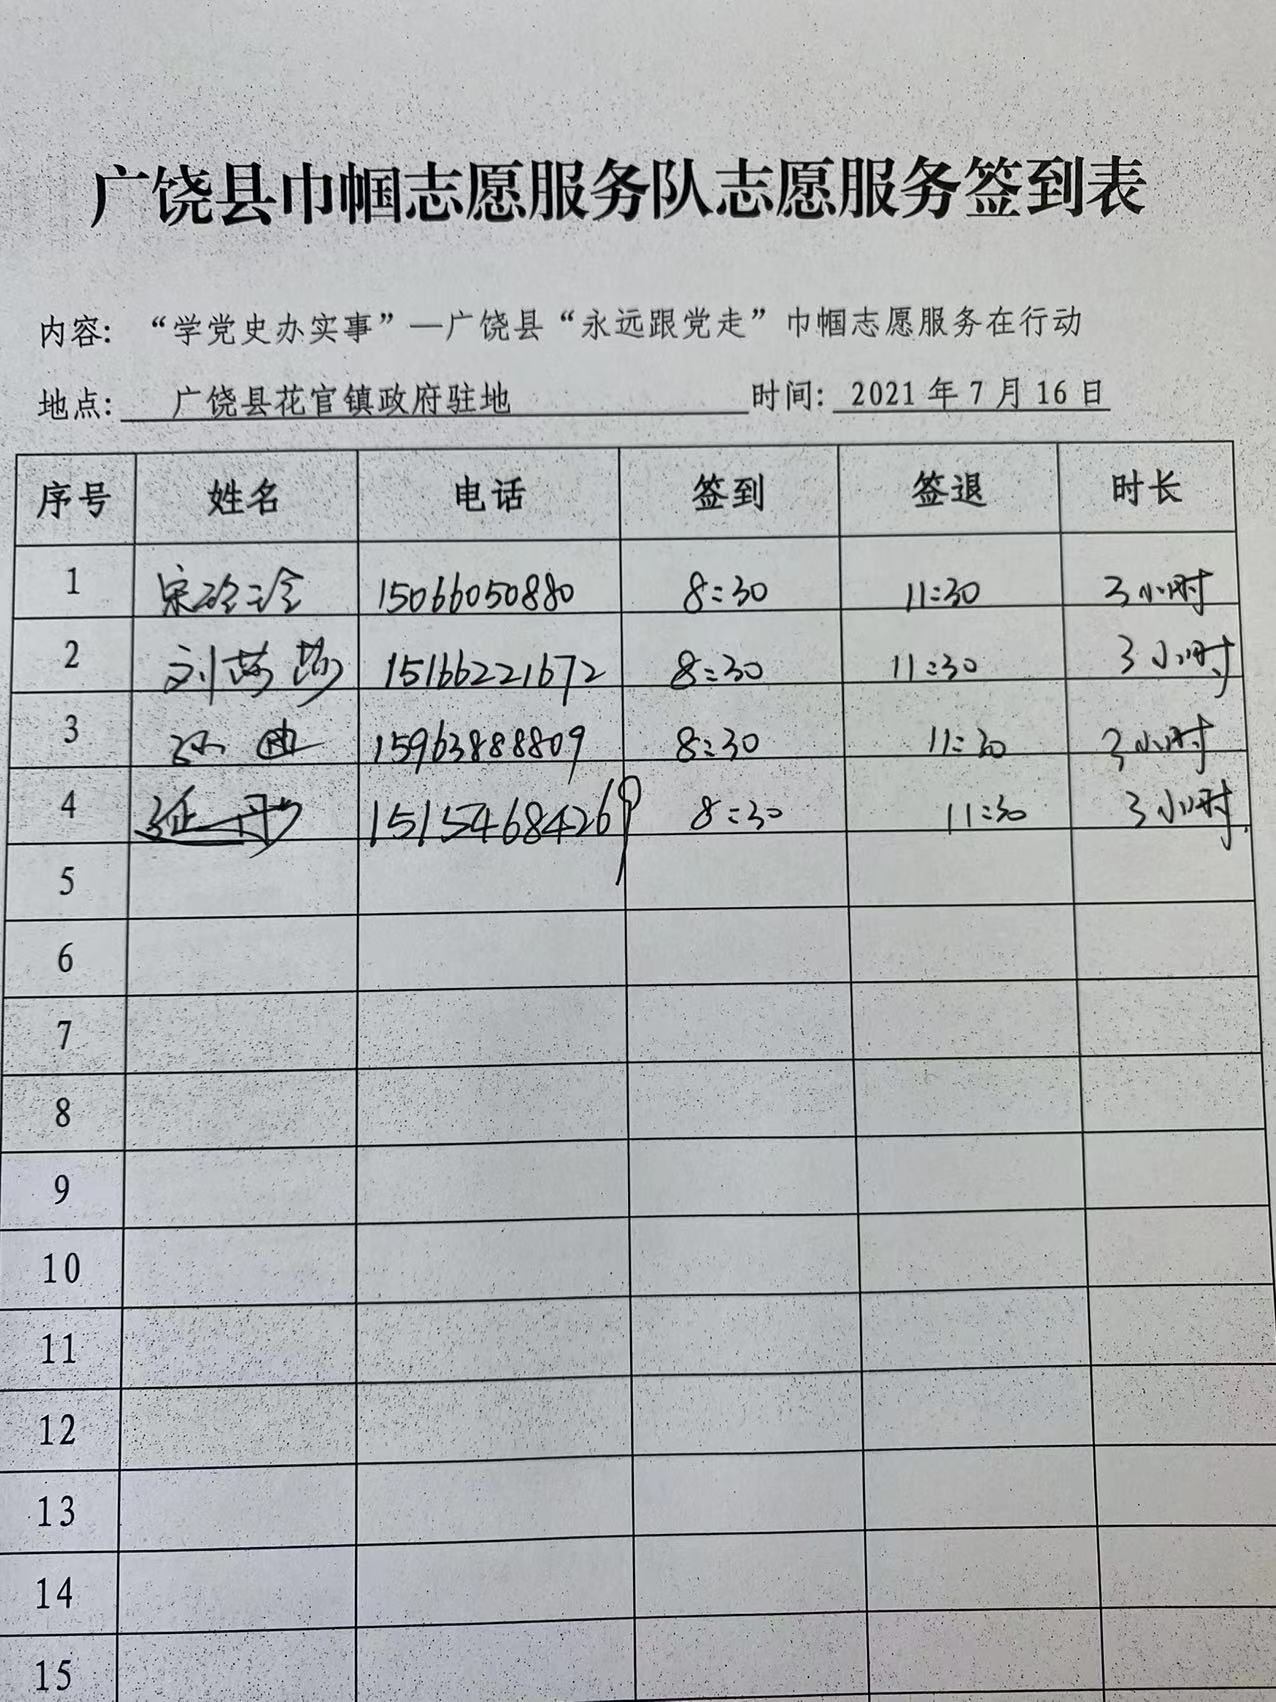 广饶县巾帼志愿服务队志愿服务签到表
内容: “学党史办实事”—广饶县“永远跟党走”巾帼志愿服务在行动
地点: 广饶县花官镇政府驻地 时间: 2021 年 7 月 16 日
序号 姓名 电话 签到 签退 时长
1 宋玲玲 15066050880 8:30 11:30 3小时
2 刘莎莎 15166221672 8:30 11:30 3小时
3 15963888809 8:30 11:30 3小时
4 15154684269 8:30 11:30 3小时
5
6
7
8
9
10
11
12
13
14
15